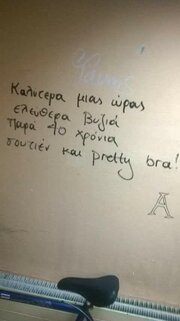 Καλυτερα μιας ώρας
ελευθερα βυζιά
παρά 40 χρόνια
σουτιέν και pretty bra!
A